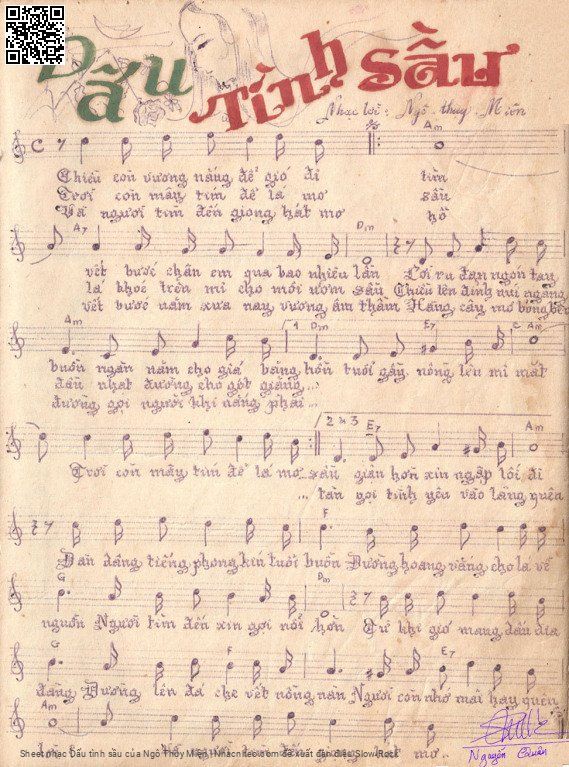 Dấu Tình Sầu
Nhạc lời: Ngô Thụy Miên
Am
Chiều còn vương nắng để gió đi tìm
Trời còn mây tím để lá mơ sầu
Và người tìm đến giọng hát mơ hồ
A7 Dm
vết bước chân em qua bao nhiêu lần Lời ru đan ngón tay
lá khóc trên mi cho môi ươm sầu Chiều lên đỉnh núi ngang
vết bước năm xưa nay vương âm thầm Hàng cây mơ bóng
Am 1 Dm E7 Am
buồn ngàn năm cho giá băng hồn tuổi gầy nồng lên mi mắt
đầu nhạt đường cho gót
đường gọi người khi nắng phai...
2 & 3 E7 Am
Trời còn mây tím để lá mơ... sầu giận hờn xin ngập lối đi
... tàn gọi tình yêu vào lãng quên
F
Đàn dâng tiếng phong kín tuổi buồn Đường hoang vắng cho lá về
G Dm
nguồn Người tìm đến xin gọi nỗi hờn Từ khi gió mang dấu địa
G F E7
đàng Đường lên đá che vết nồng nàn Người còn nhớ mãi hay quên
Am
Sheet nhạc Dấu tình sầu của Ngô Thụy Miên | Nhacnheo.com đề xuất đàn điệu Slow Rock
Nguyễn Quân